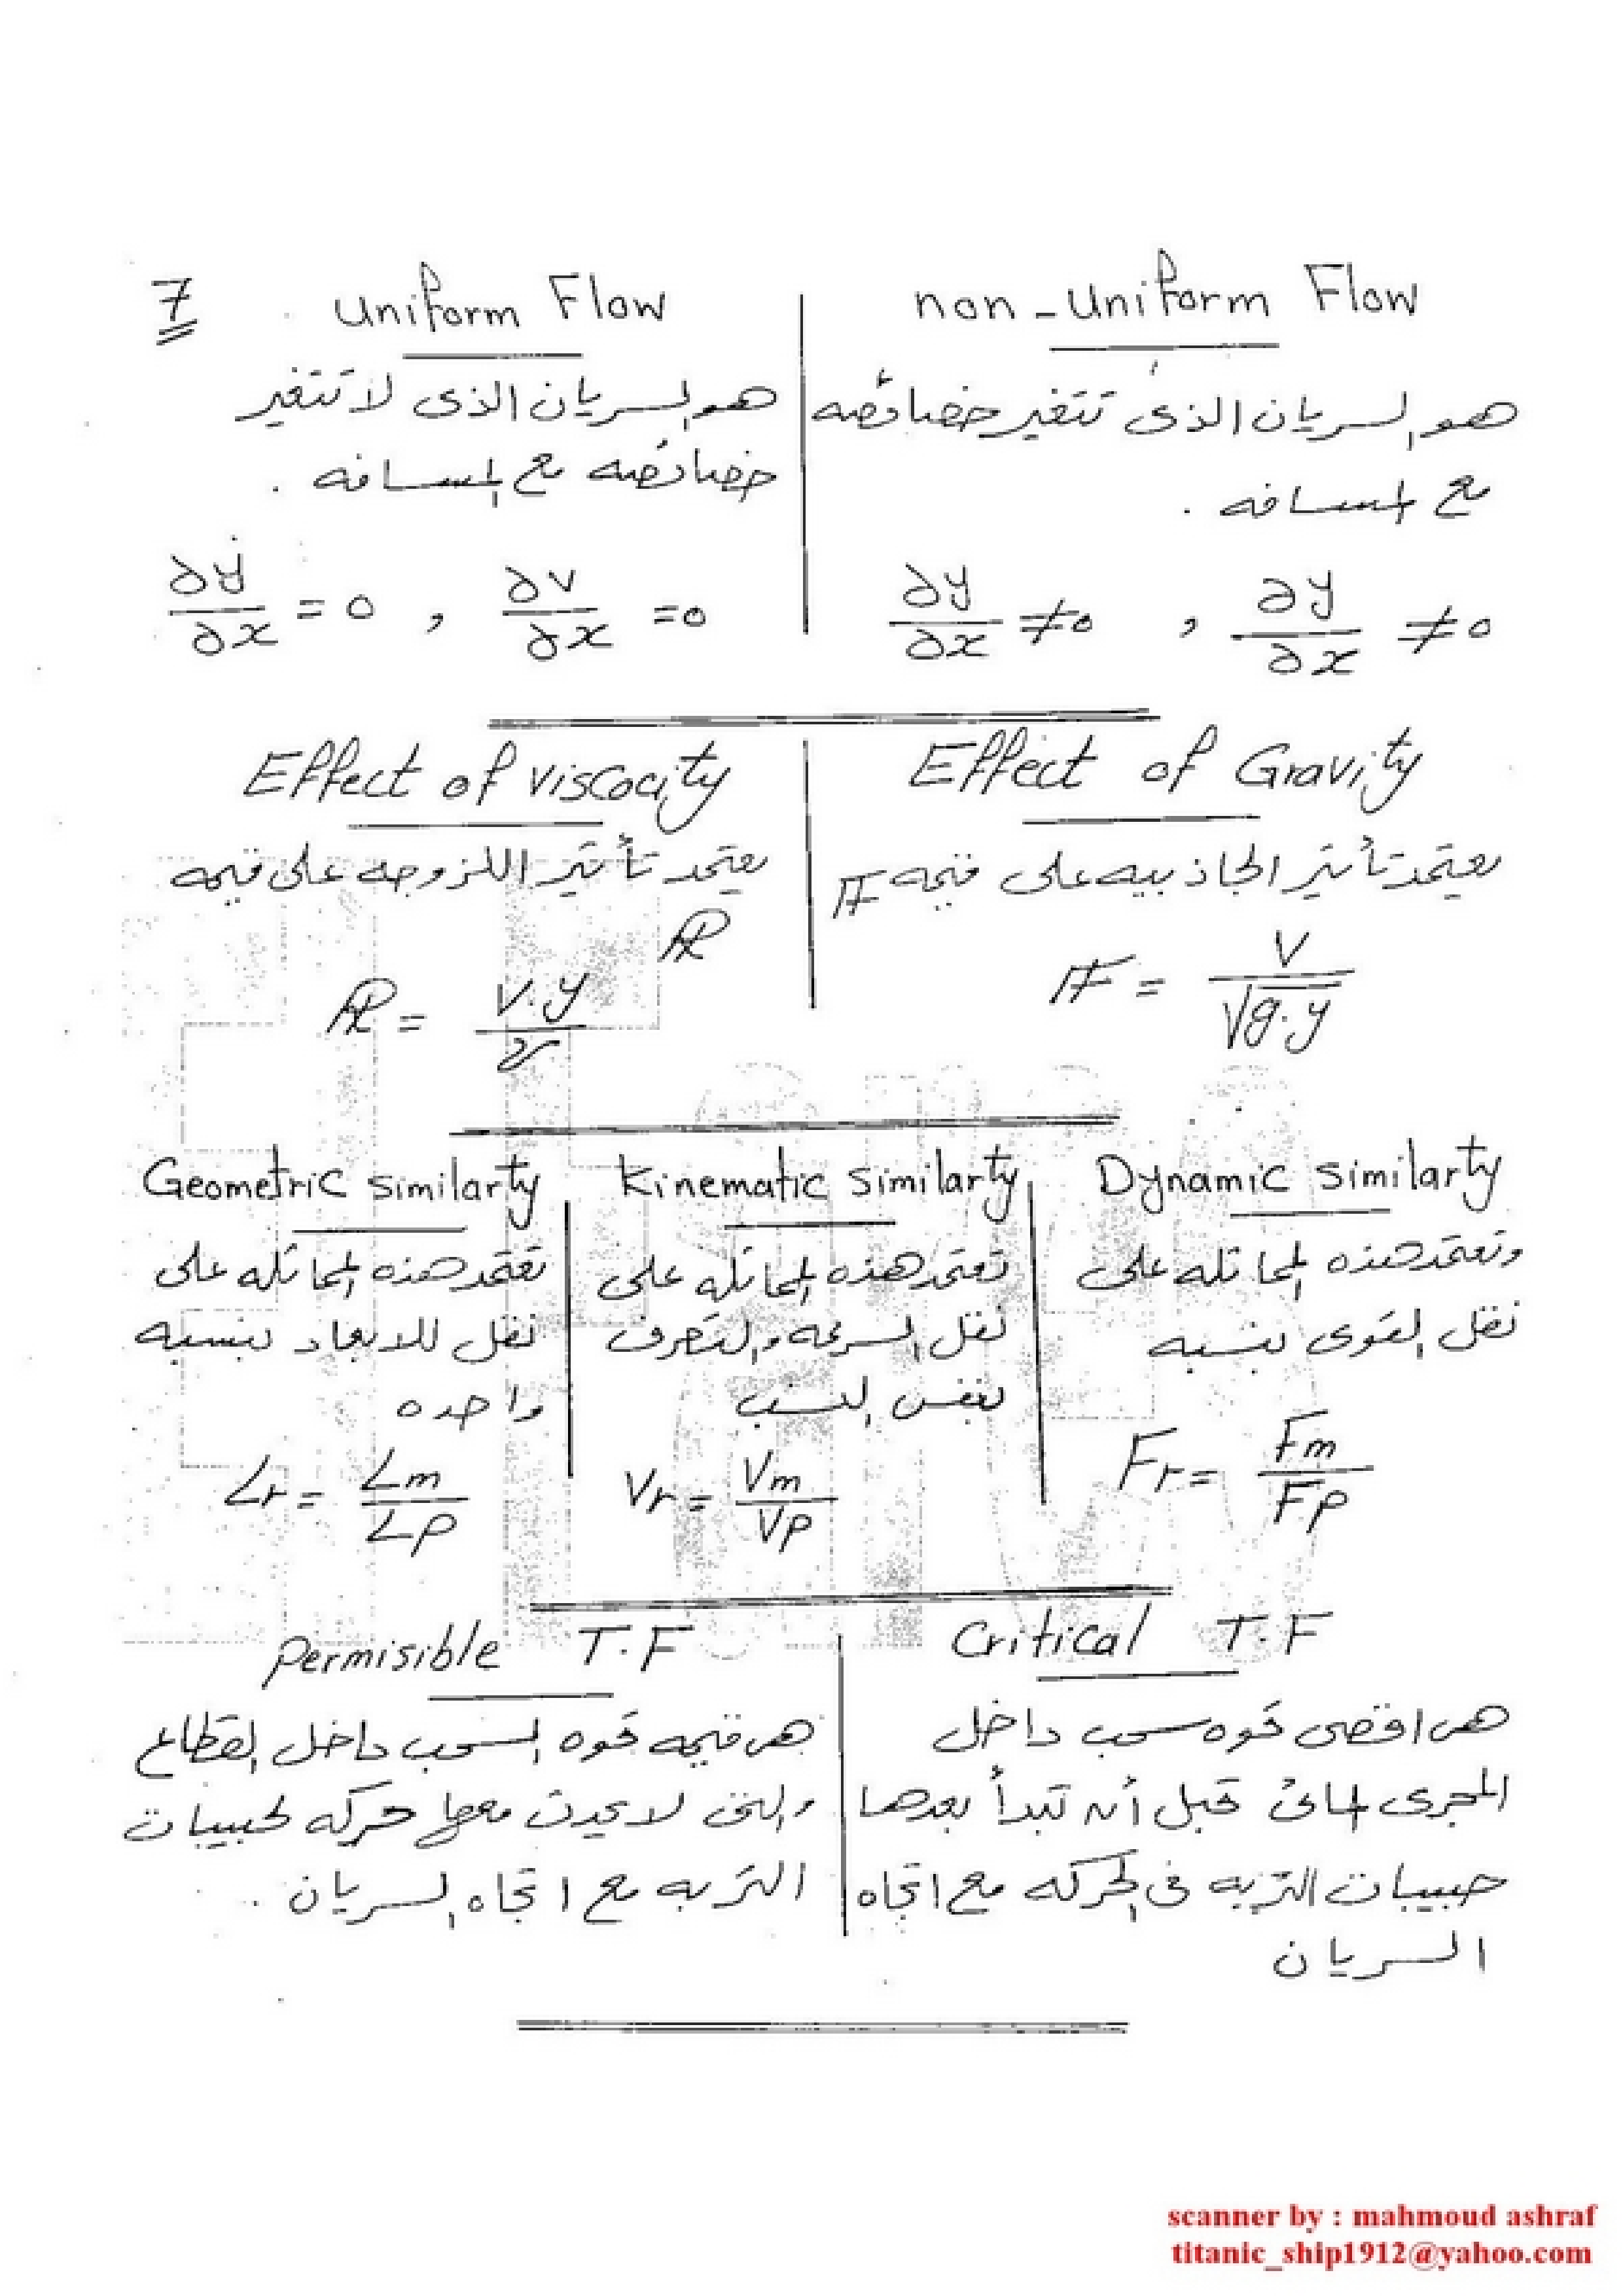 7
uniform Flow
هو السريان الذى لا تتغير
خصائصه مع المسافه .
∂y/∂x = 0 , ∂v/∂x = 0
non-uniform Flow
هو السريان الذى تتغير خصائصه
مع المسافه .
∂y/∂x ≠ 0 , ∂y/∂x ≠ 0
Effect of viscocity
يعتمد تأثير اللزوجه على قيمه
R
R = V.y/ν
Effect of Gravity
يعتمد تأثير الجاذبيه على قيمه F
F = V/√g.y
Geometric similarty
تعتمد هذه المماثله على
نقل للابعاد بنسبه
واحده
Lr = Lm/Lp
Kinematic similarty
تعتمد هذه المماثله على
نقل السرعه والتصرف
بنفس النسب
Vr = Vm/Vp
Dynamic similarty
وتعتمد هذه المماثله على
نقل القوى بنسبه
Fr = Fm/Fp
permisible T.F
هى قيمه قوه السحب داخل القطاع
والتى لا يحدث معها حركه لحبيبات
التربه مع اتجاه السريان .
Critical T.F
هى اقصى قوه سحب داخل
المجرى المائى قبل أن تبدأ بعدها
حبيبات التربه فى الحركه مع اتجاه
السريان
scanner by : mahmoud ashraf
titanic_ship1912@yahoo.com